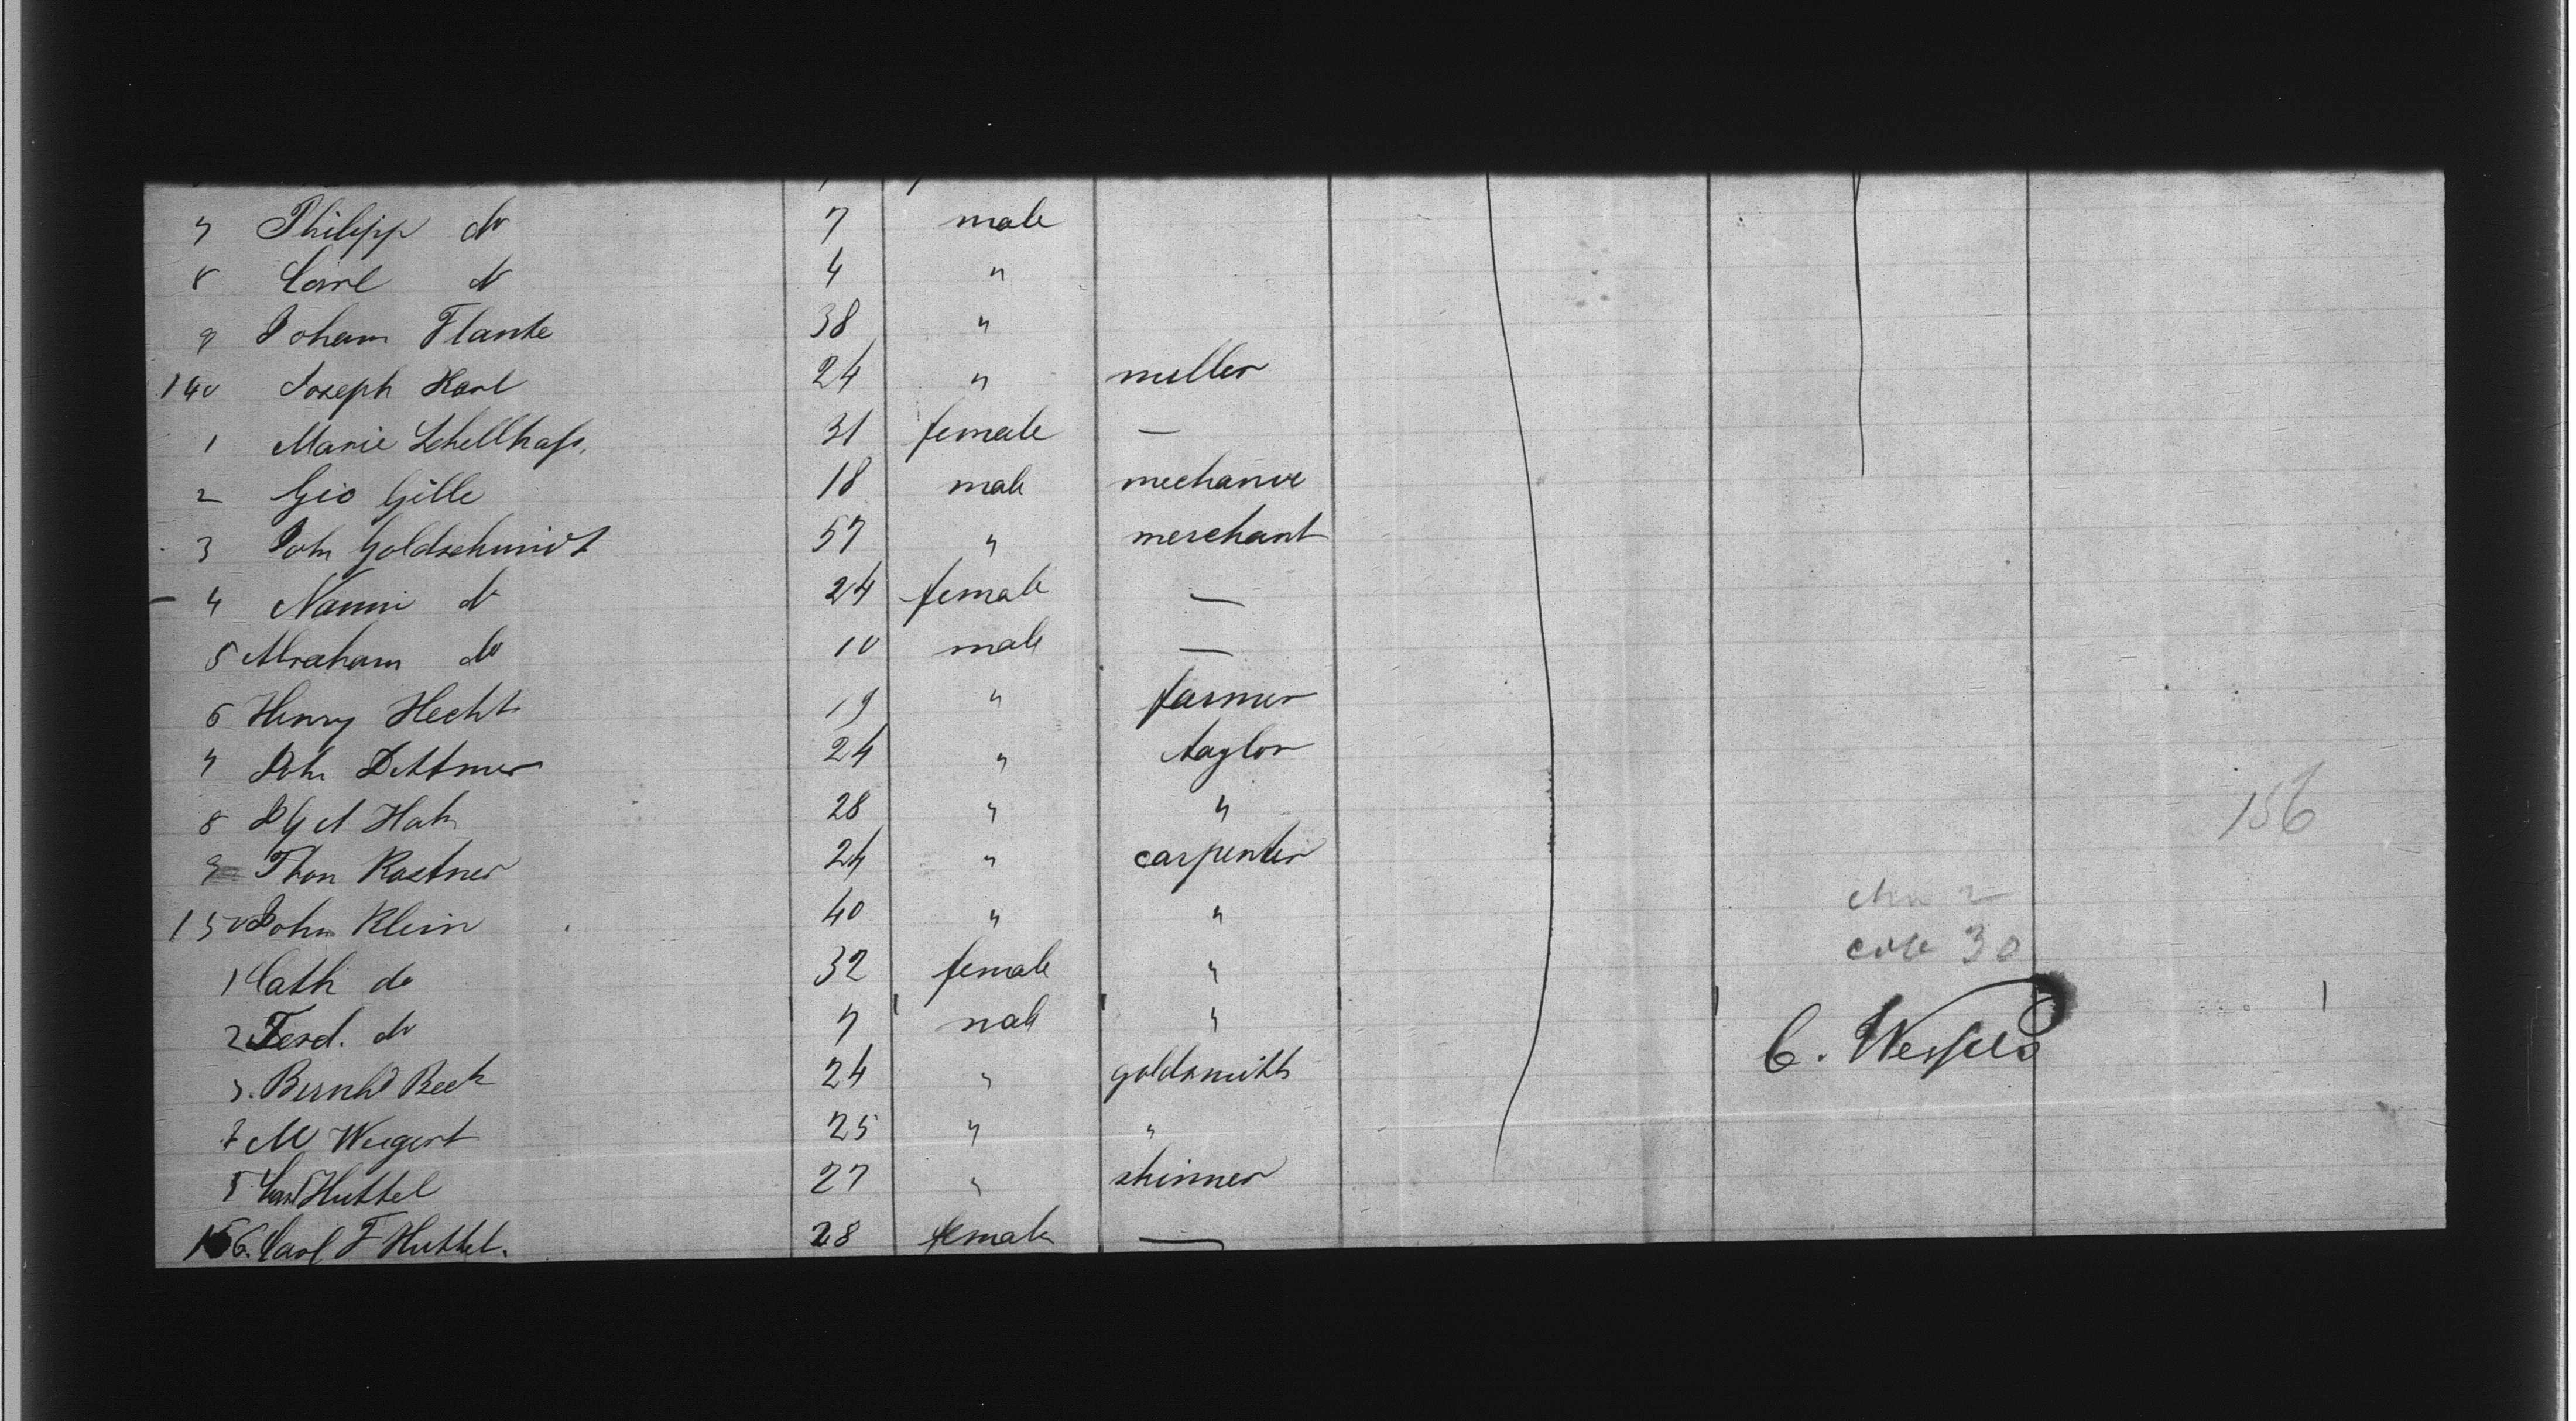 7 Philipp do 7 male
8 Carl do 4 "
9 Joham Flanke 38 "
140 Joseph Karl 24 " miller
1 Marie Schellhass. 31 female —
2 Geo Gille 18 male mechanic
3 Joh Goldschmidt 57 " merchant
4 Nanni do 24 female —
5 Abraham do 10 male —
6 Henry Hecht 19 " farmer
7 Joh Dittmer 24 " taylor
8 Hah 28 " "
9 Thon Kastner 24 " carpenter
150 John Klein 40 " "
1 Cath do 32 female "
2 Ferd. do 7 male "
3. Bernhd Beck 24 " goldsmith
4 M Wiegert 25 " "
5 Carl Huttel 27 " skinner
156. Carl F Huttel. 28 female —
156
2
30
C.